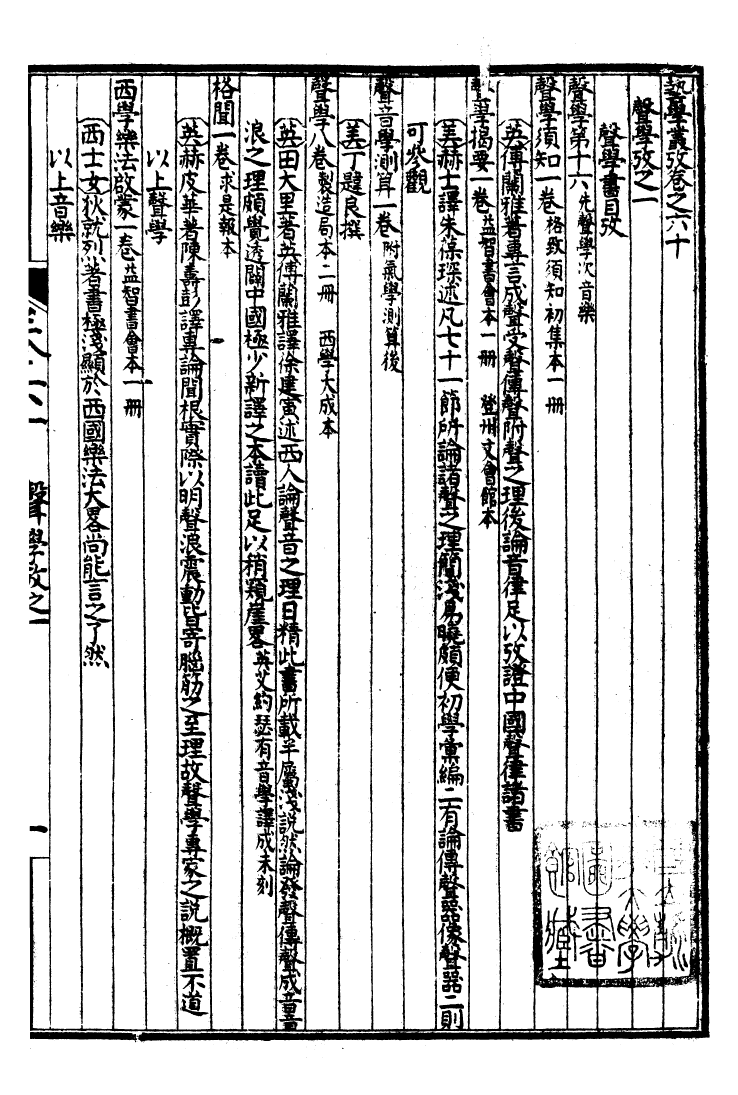 藝學叢攷卷之六十
聲學攷之一
聲學書目攷
聲學第十六先聲學次音樂
聲學須知一卷格致須知初集本一冊
英傅闌雅著專言成聲受聲傳聲附聲之理後論音律足以攷證中國聲律諸書
聲學揭要一卷益智書會本一冊 登州文會館本
美赫士譯朱葆琛述凡七十一節所論諸聲之理簡淺易曉頗便初學彙編二有論傳聲器像聲器二則
可參觀
聲音學測算一卷附氣學測算後
美丁韙良撰
聲學八卷製造局本二冊 西學大成本
英田大里著英傅闌雅譯徐建寅述西人論聲音之理日精此書所載半屬淺說然論發聲傳聲成音
浪之理頗覺透闢中國極少新譯之本讀此足以稍窺崖畧英艾約瑟有音學譯成未刻
格聞一卷求是報本
英赫皮華著陳壽彭譯專論聞根實際以明聲浪震動皆寄腦筋之至理故聲學專家之說概置不道
以上聲學
西學樂法啟蒙一卷益智書會本一冊
西士女狄就烈著書極淺顯於西國樂法大畧尚能言之了然
以上音樂
聲學攷之一
一